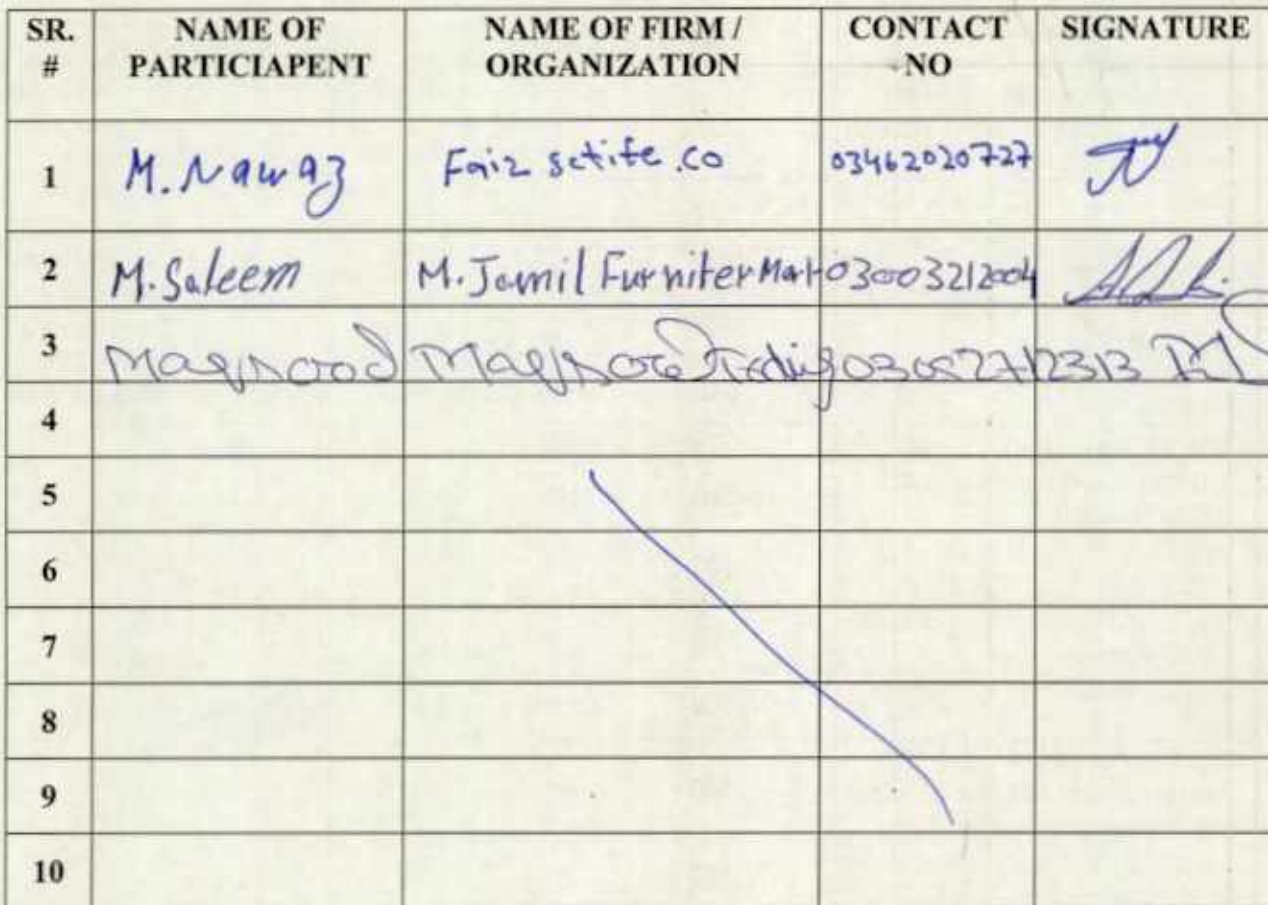 SR. # NAME OF PARTICIAPENT NAME OF FIRM / ORGANIZATION CONTACT NO SIGNATURE
1 M. Nawaz Faiz sctife .co 03462020727
2 M. Saleem M. Jamil Furniter Mart 03003212004
3 Maqsood Maqsood Trading
4
5
6
7
8
9
10